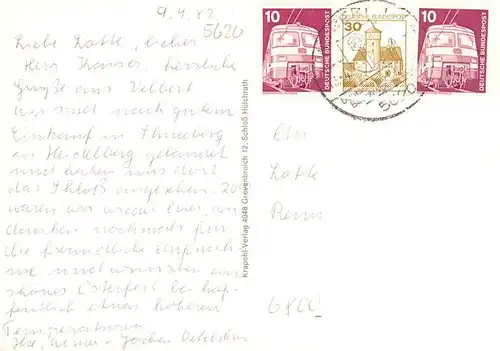 9.4.82
5620
Liebe Lotte, lieber
Herr Kranser, herzliche
Grüße aus Velbert
wir sind nach gutem
Einkauf in
in Heidelberg gelandet
und haben uns dort
das Schloß angesehen.
waren wir wieder hier, wir
danken nochmals für
die freundliche Aufnah-
me und wünschen ein
schönes Osterfest bei hof-
fentlich etwas höheren
Temperaturen
Ilse, Werner + Jochen
Krapohl-Verlag 4048 Grevenbroich 12, Schloß Hülchrath
10
DEUTSCHE BUNDESPOST
30
DEUTSCHE BUNDESPOST
10
DEUTSCHE BUNDESPOST
5620
Lotte